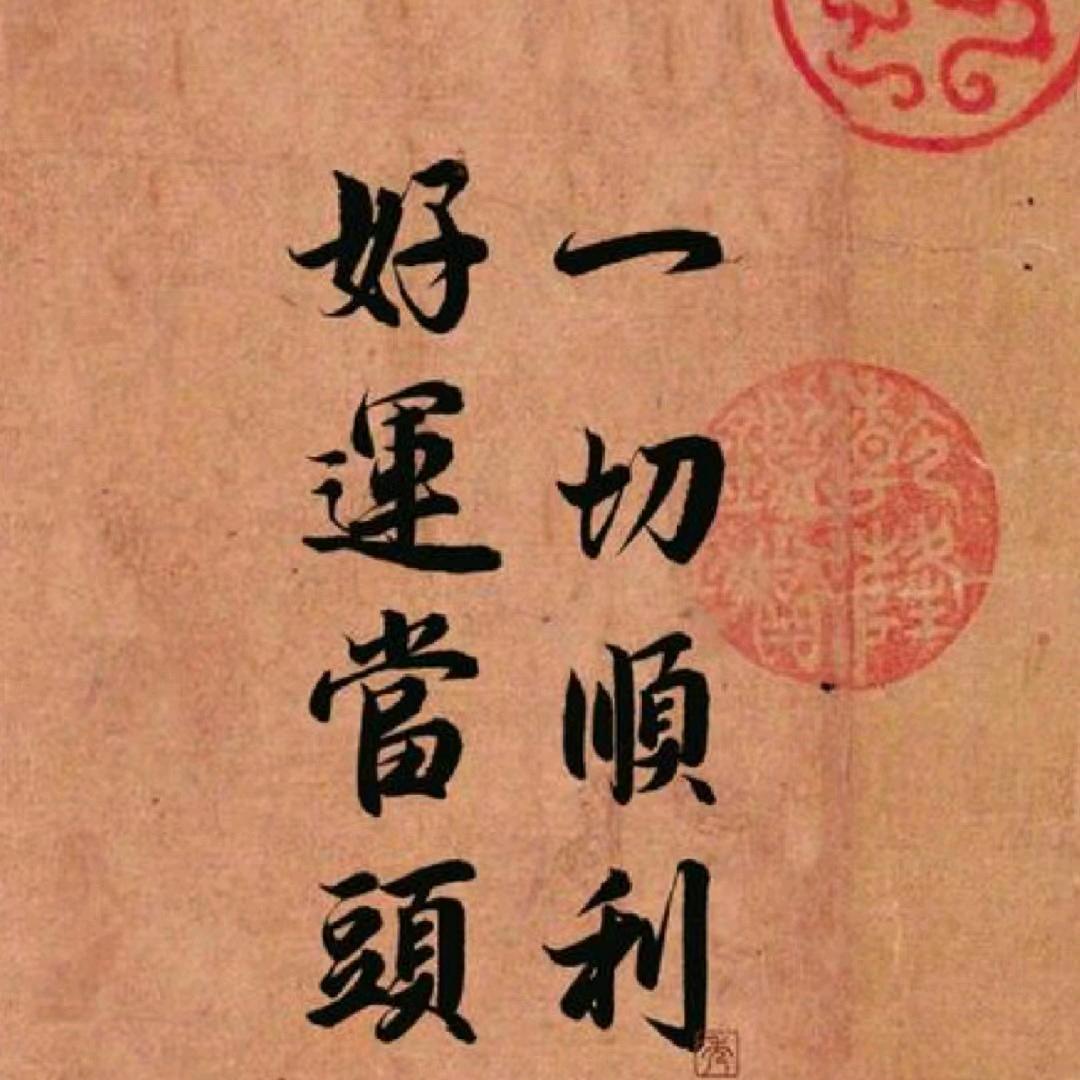 一切順利
好運當頭